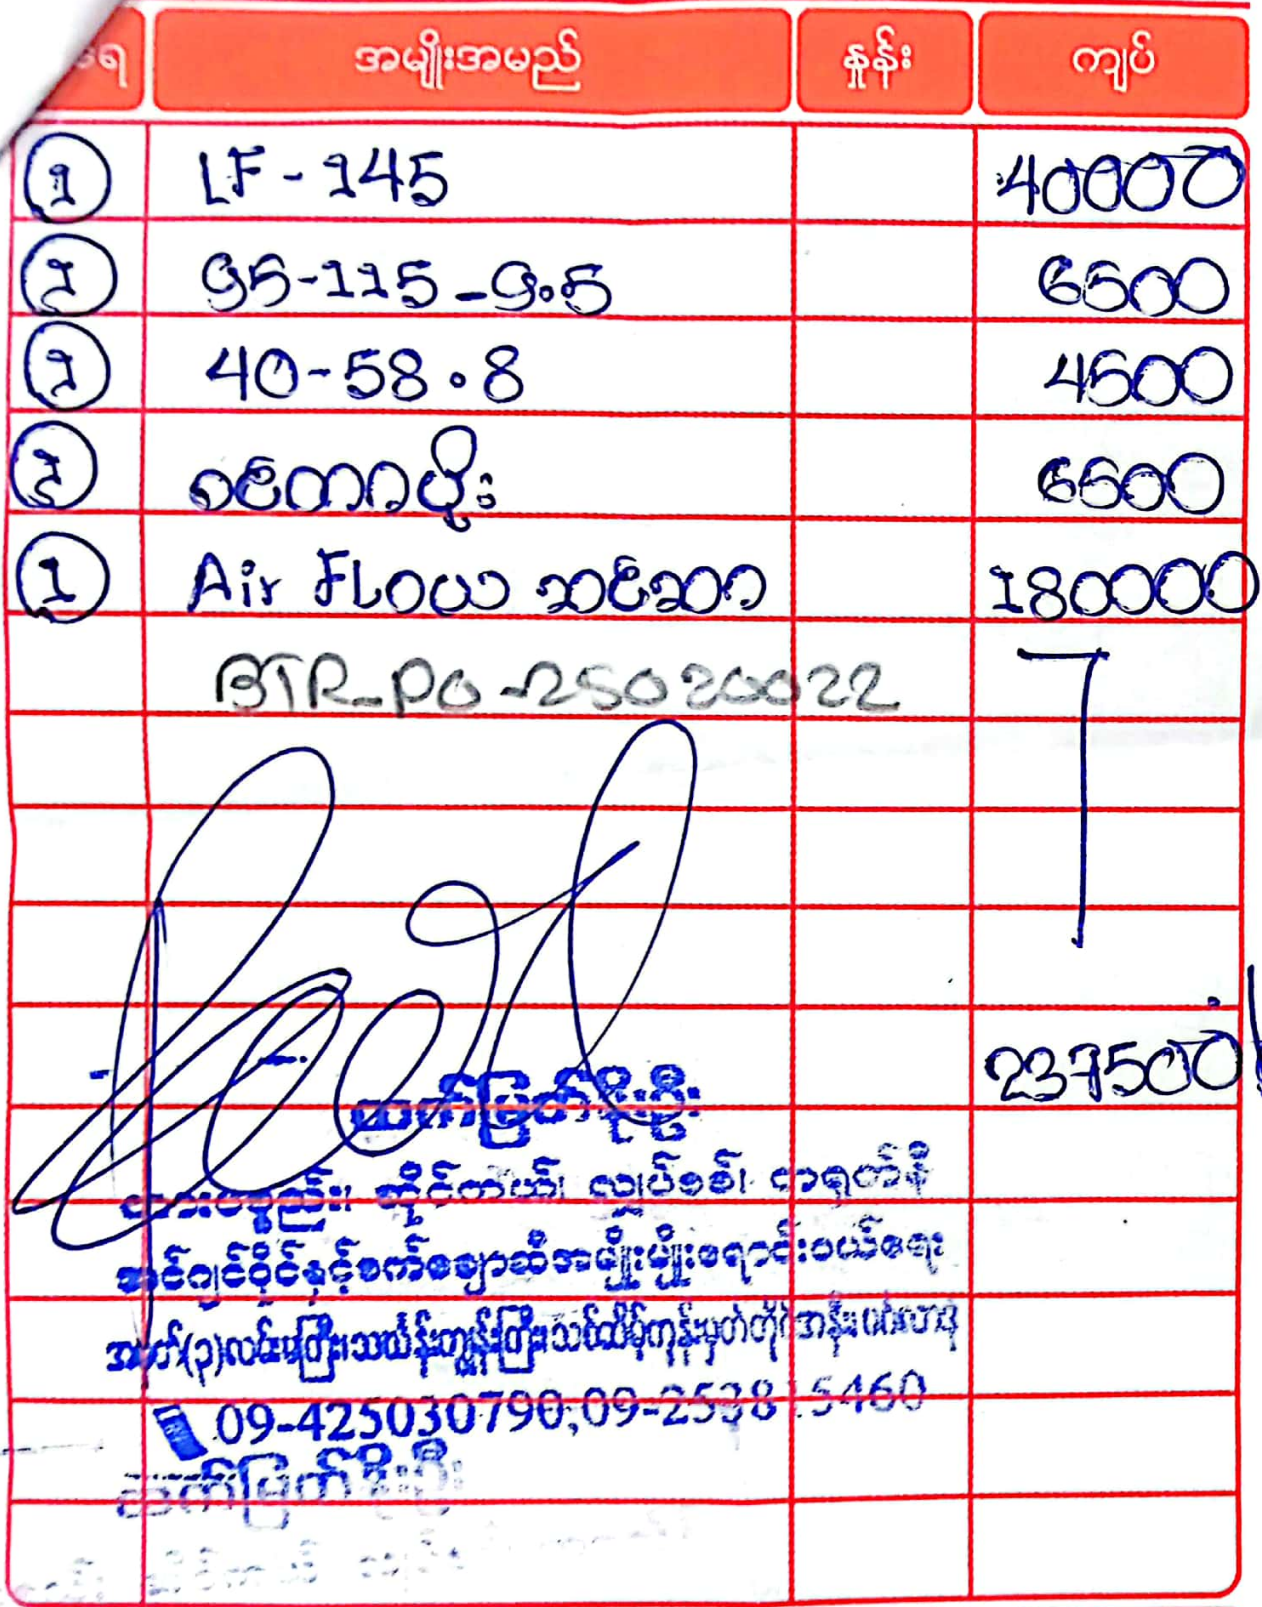 ရေ အမျိုးအမည် နှုန်း ကျပ်
1 LF - 145 40000
1 95-115-9.5 6500
1 40-58.8 4500
2 စင်ကာဖိုး 6500
1 Air FLOယာ ဆင်ဆာ 180000
BTR-PO-25020022
237500
ဆက်မြတ်စိုးဦး
ကားပစ္စည်း၊ ဆိုင်ကယ်၊ လျှပ်စစ်၊
အင်ဂျင်ဝိုင်နှင့်စက်ချောဆီအမျိုးမျိုးရောင်းဝယ်ရေး
အမှတ်(၃)လမ်းမကြီး၊သင်္ဃန်းကျွန်းကြီး
09-425030790,09-2538 5460
ဆက်မြတ်စိုးဦး